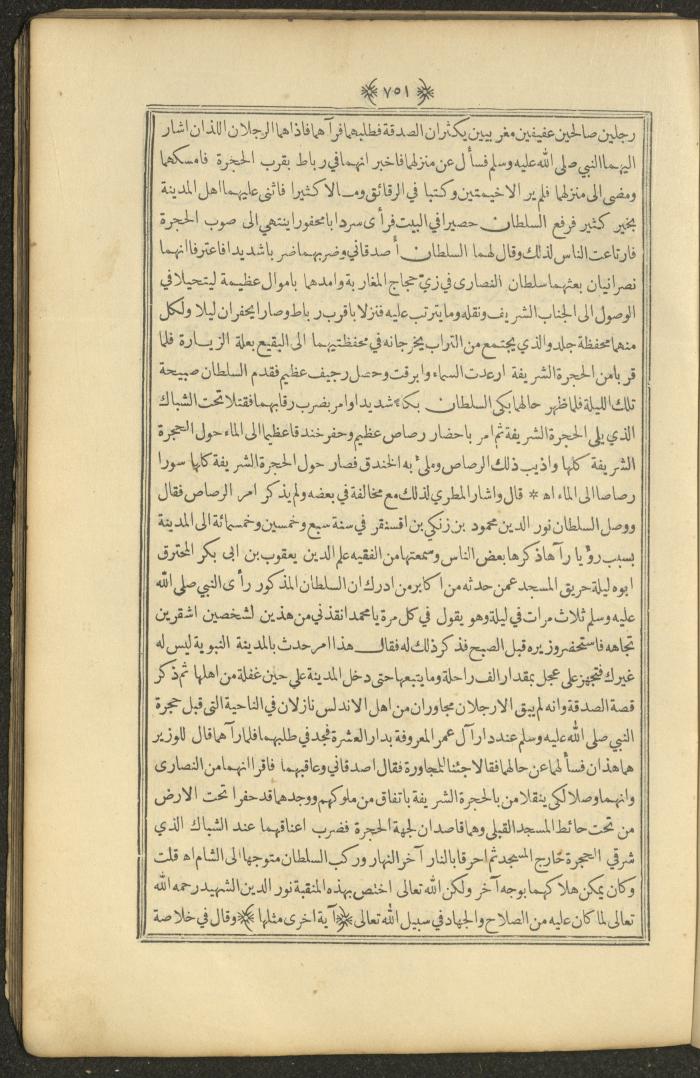 ﴿٧٥١﴾
رجلين صالحين عفيفين مغربيين يكثران الصدقة فطلبهما فرآهما فاذا هما الرجلان اللذان اشار
اليهما النبي صلى الله عليه وسلم فسأل عن منزلهما فاخبر انهما في رباط بقرب الحجرة فامسكهما
ومضى الى منزلهما فلم ير الا خيمتين وكتبا في الرقائق ومالا كثيرا فاثنى عليهما اهل المدينة
بخير كثير فرفع السلطان حصيرا في البيت فرأى سردابا محفورا ينتهي الى صوب الحجرة
فارتاعت الناس لذلك وقال لهما السلطان أصدقاني وضربهما ضربا شديدا فاعترفا انهما
نصرانيان بعثهما سلطان النصارى في زيّ حجاج المغاربة وامدهما باموال عظيمة ليتحيلا في
الوصول الى الجناب الشريف ونقله وما يترتب عليه فنزلا باقرب رباط وصارا يحفران ليلا ولكل
منهما محفظة جلد والذي يجتمع من التراب يخرجانه في محفظتيهما الى البقيع بعلة الزيارة فلما
قربا من الحجرة الشريفة ارعدت السماء وابرقت وحصل رجيف عظيم فقدم السلطان صبيحة
تلك الليلة فلما ظهر حالهما بكى السلطان بكاء شديدا وامر بضرب رقابهما فقتلا تحت الشباك
الذي يلي الحجرة الشريفة ثم امر باحضار رصاص عظيم وحفر خندقا عظيما الى الماء حول الحجرة
الشريفة كلها واذيب ذلك الرصاص وملئ به الخندق فصار حول الحجرة الشريفة كلها سورا
رصاصا الى الماء اه * قال واشار المطري لذلك مع مخالفة في بعضه ولم يذكر امر الرصاص فقال
ووصل السلطان نور الدين محمود بن زنكي بن اقسنقر في سنة سبع وخمسين وخمسمائة الى المدينة
بسبب رؤيا رآها ذكرها بعض الناس وسمعتها من الفقيه علم الدين يعقوب بن ابي بكر المحترق
ابوه ليلة حريق المسجد عمن حدثه من اكابر من ادرك ان السلطان المذكور رأى النبي صلى الله
عليه وسلم ثلاث مرات في ليلة وهو يقول في كل مرة يا محمد انقذني من هذين لشخصين اشقرين
تجاهه فاستحضر وزيره قبل الصبح فذكر ذلك له فقال هذا امر حدث بالمدينة النبوية ليس له
غيرك فتجهز على عجل بمقدار الف راحلة وما يتبعها حتى دخل المدينة على حين غفلة من اهلها ثم ذكر
قصة الصدقة وانه لم يبق الا رجلان مجاوران من اهل الاندلس نازلان في الناحية التي قبل حجرة
النبي صلى الله عليه وسلم عند دار آل عمر المعروفة بدار العشرة فجد في طلبهما فلما رآهما قال للوزير
هما هذان فسألهما عن حالهما فقالا جئنا للمجاورة فقال اصدقاني وعاقبهما فاقرا انهما من النصارى
وانهما وصلا لكي ينقلا من بالحجرة الشريفة باتفاق من ملوكهم ووجدهما قد حفرا تحت الارض
من تحت حائط المسجد القبلي وهما قاصدان لجهة الحجرة فضرب اعناقهما عند الشباك الذي
شرقي الحجرة خارج المسجد ثم احرقا بالنار آخر النهار وركب السلطان متوجها الى الشام اه قلت
وكان يمكن هلاكهما بوجه آخر ولكن الله تعالى اختص بهذه المنقبة نور الدين الشهيد رحمه الله
تعالى لما كان عليه من الصلاح والجهاد في سبيل الله تعالى ﴿آية اخرى مثلها﴾ وقال في خلاصة